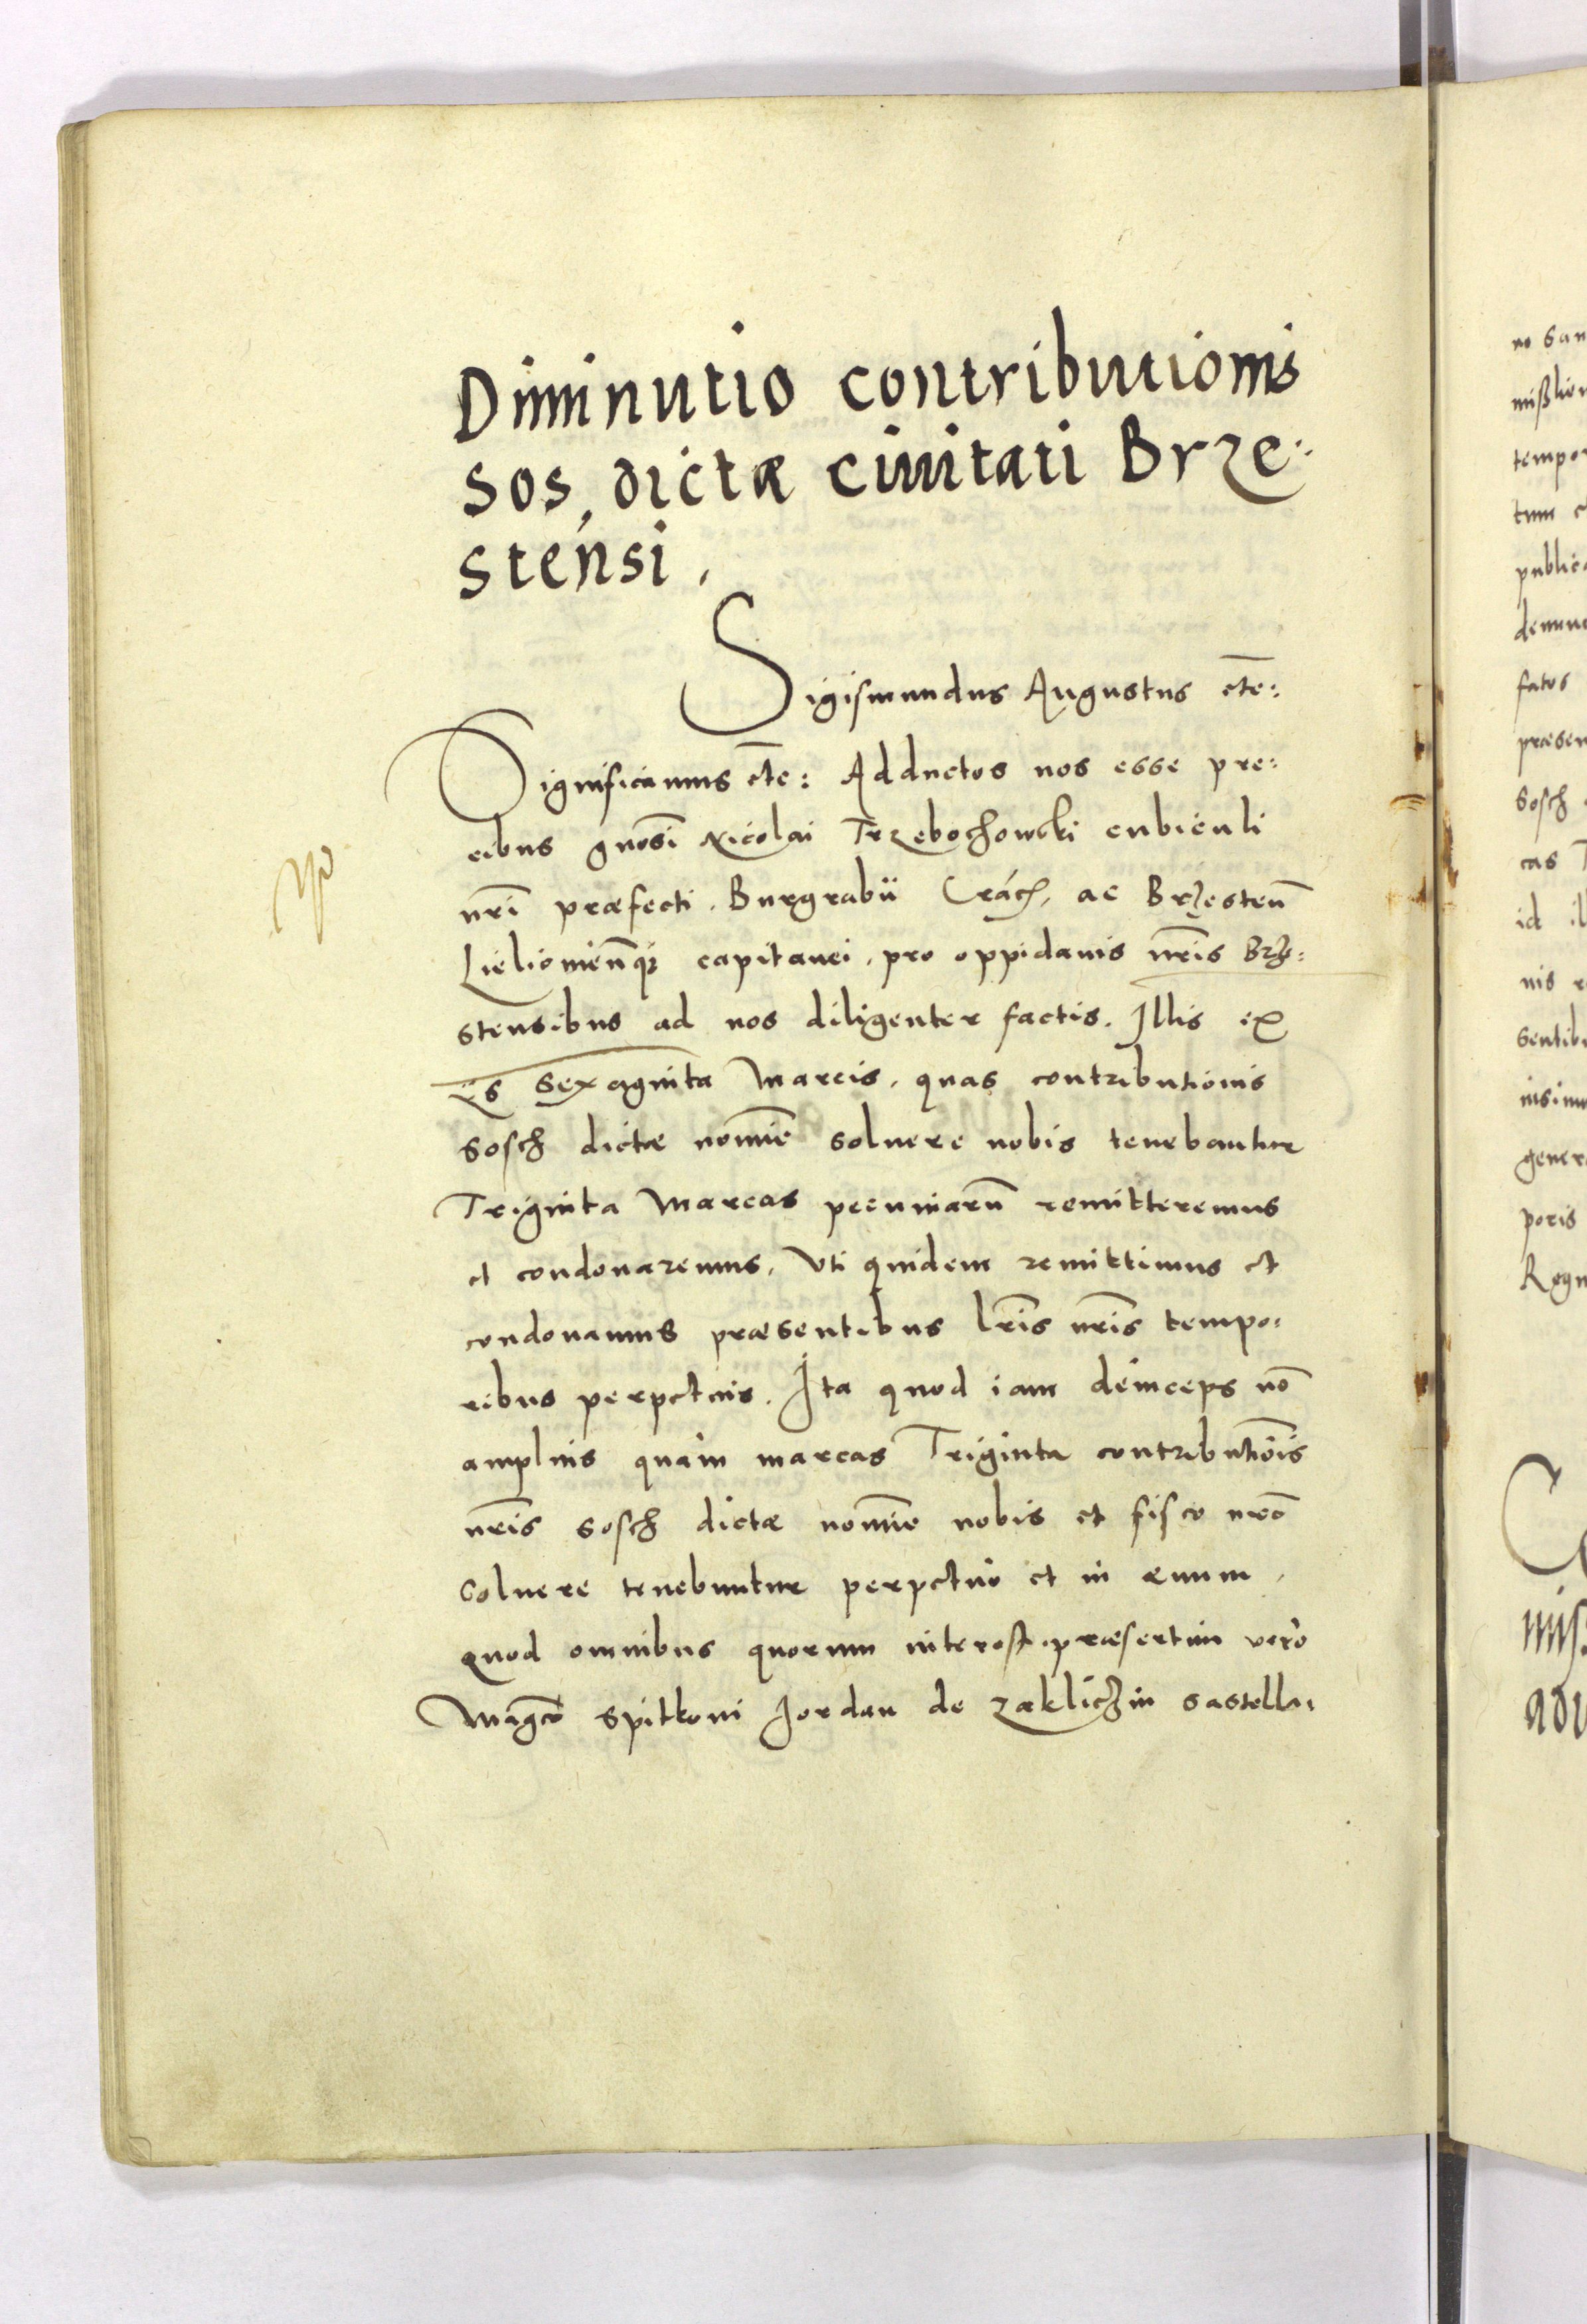 Diminutio contributionis
sos, dictæ ciuitati Brze-
stensi.
Sigismundus Augustus etc:
Significamus etc: Adductos nos esse pre-
cibus gnosi Nicolai Trzebochowcki cubiculi
nri præfecti. Burgrabii Crac. ac Brzesten
capitanei. pro oppidanis nris Brze-
stensibus ad nos diligenter factis. Illis ex
iis sexaginta Marcis. quas contributionis
sosch dictæ nomine soluere nobis tenebantur
Triginta Marcas pecuniaru remitteremus
et condonaremus. Vti quidem remittimus et
condonamus præsentibus lris nris tempo-
ribus perpetuis. Ita quod iam deinceps no
amplius quàm marcas Triginta contributiois
nreis sosch dictæ nomine nobis et fisco nro
soluere tenebuntur perpetuò et in æuum.
quod omnibus quorum interest. præsertim verò
Magco Spitkoni Jordan de Zakliczin Castella-
no San
mißlion
tempor
tum
public
denun
fatos
præsen
Sosch
cas
id il
nis r
sentib
insinu
gener
poris
Regn
mis
adu